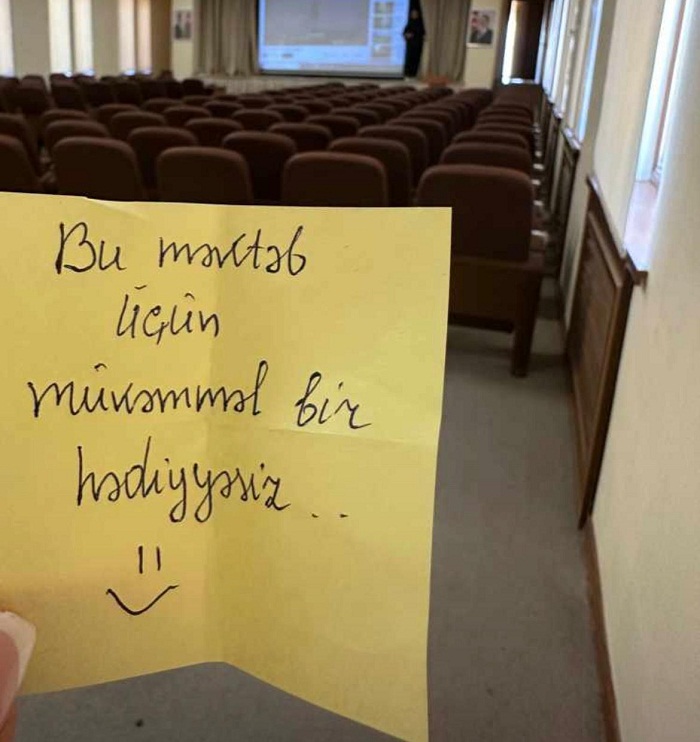 Bu məktəb
üçün
mükəmməl bir
hədiyyəsiz..